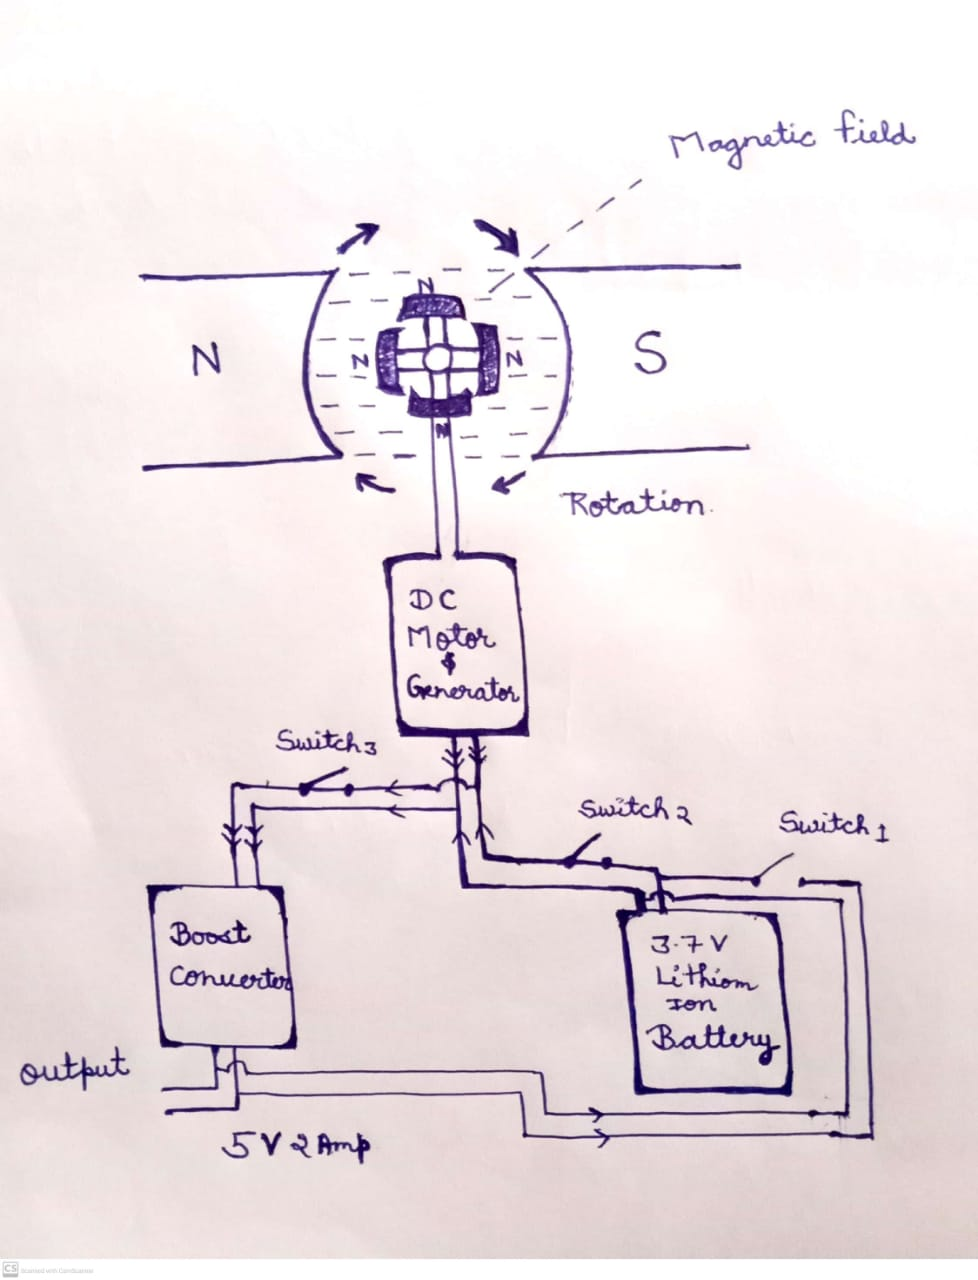 Magnetic field
N
N
N
N
S
N
Rotation.
DC
Motor
&
Generator
Switch 3
Switch 2
Switch 1
Boost
Converter
3.7 V
Lithiom
Ion
Battery
output
5 V 2 Amp
CS Scanned with CamScanner